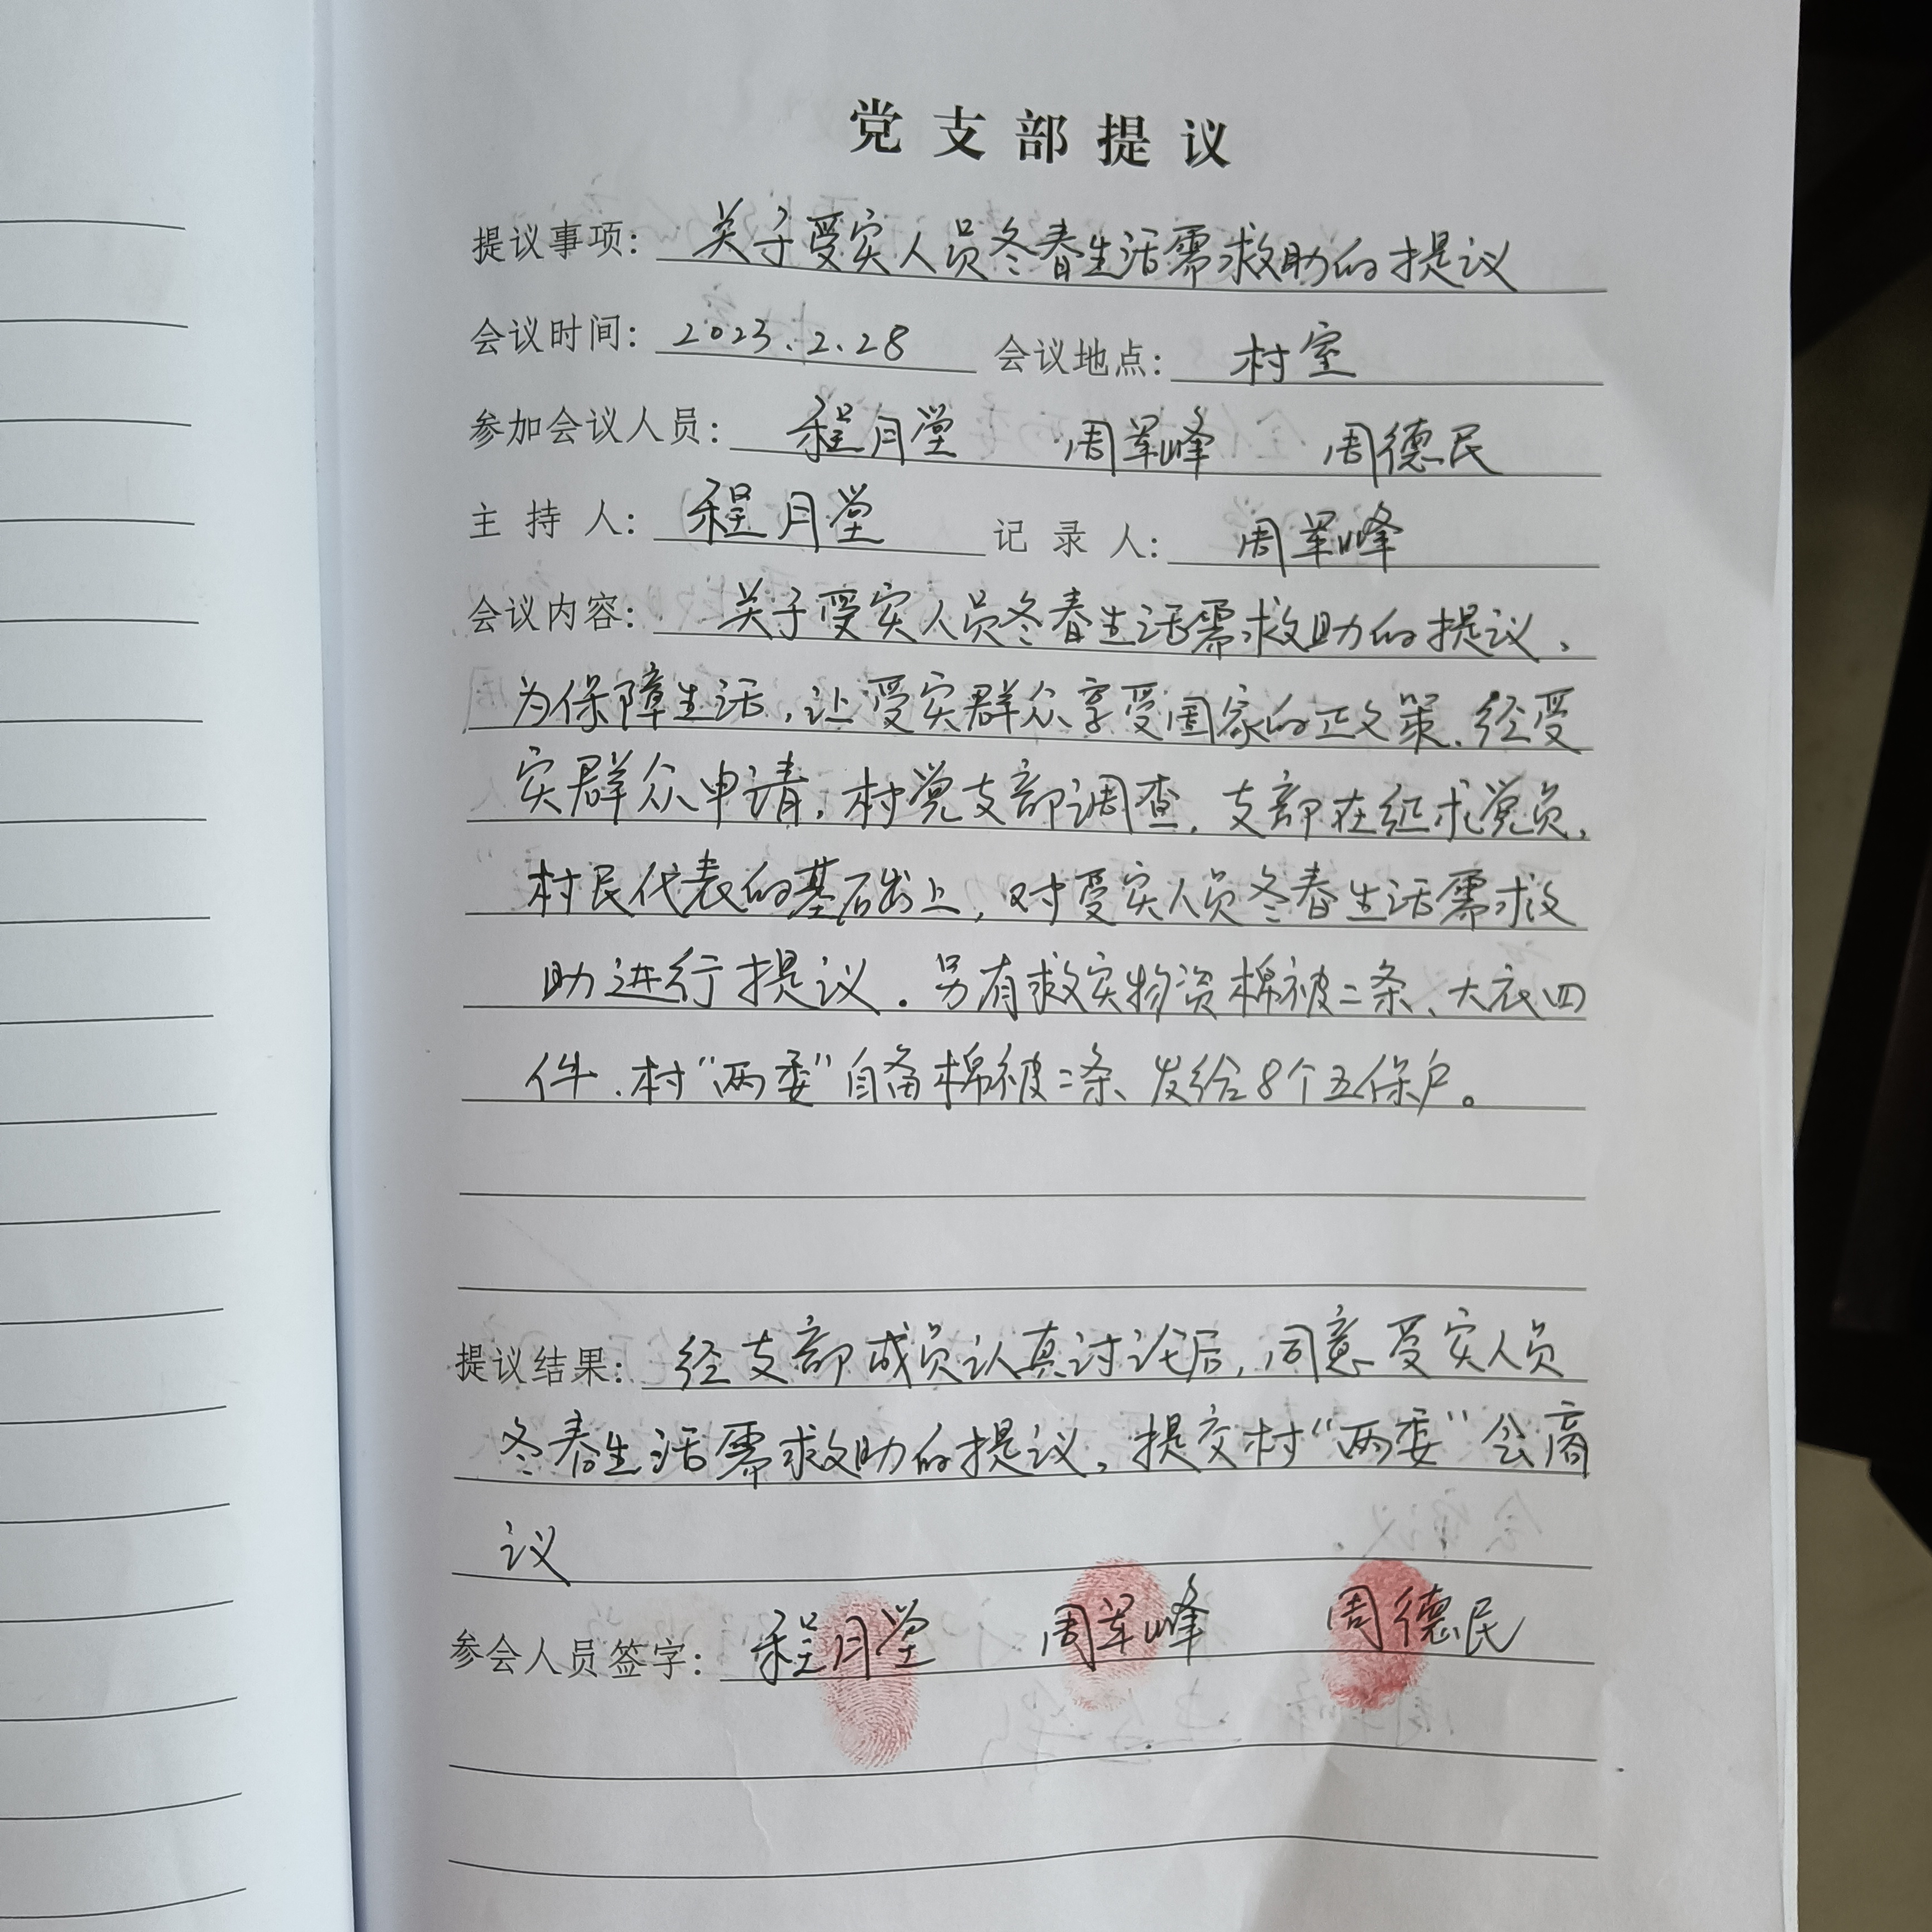 党支部提议
提议事项: 关于受灾人员冬春生活需救助的提议
会议时间: 2023.2.28 会议地点: 村室
参加会议人员: 程月堂 周军峰 周德民
主持人: 程月堂 记录人: 周军峰
会议内容: 关于受灾人员冬春生活需救助的提议、
为保障生活,让受灾群众享受国家的正文策.经受
灾群众申请,村党支部调查,支部在征求党员、
村民代表的基础上,对受灾人员冬春生活需救
助进行提议.另有救灾物资棉被二条、大衣四
件.村“两委”自备棉被二条、发给8个五保户。
提议结果: 经支部成员认真讨论后,同意受灾人员
冬春生活需救助的提议,提交村“两委”会商
议
参会人员签字: 程月堂 周军峰 周德民